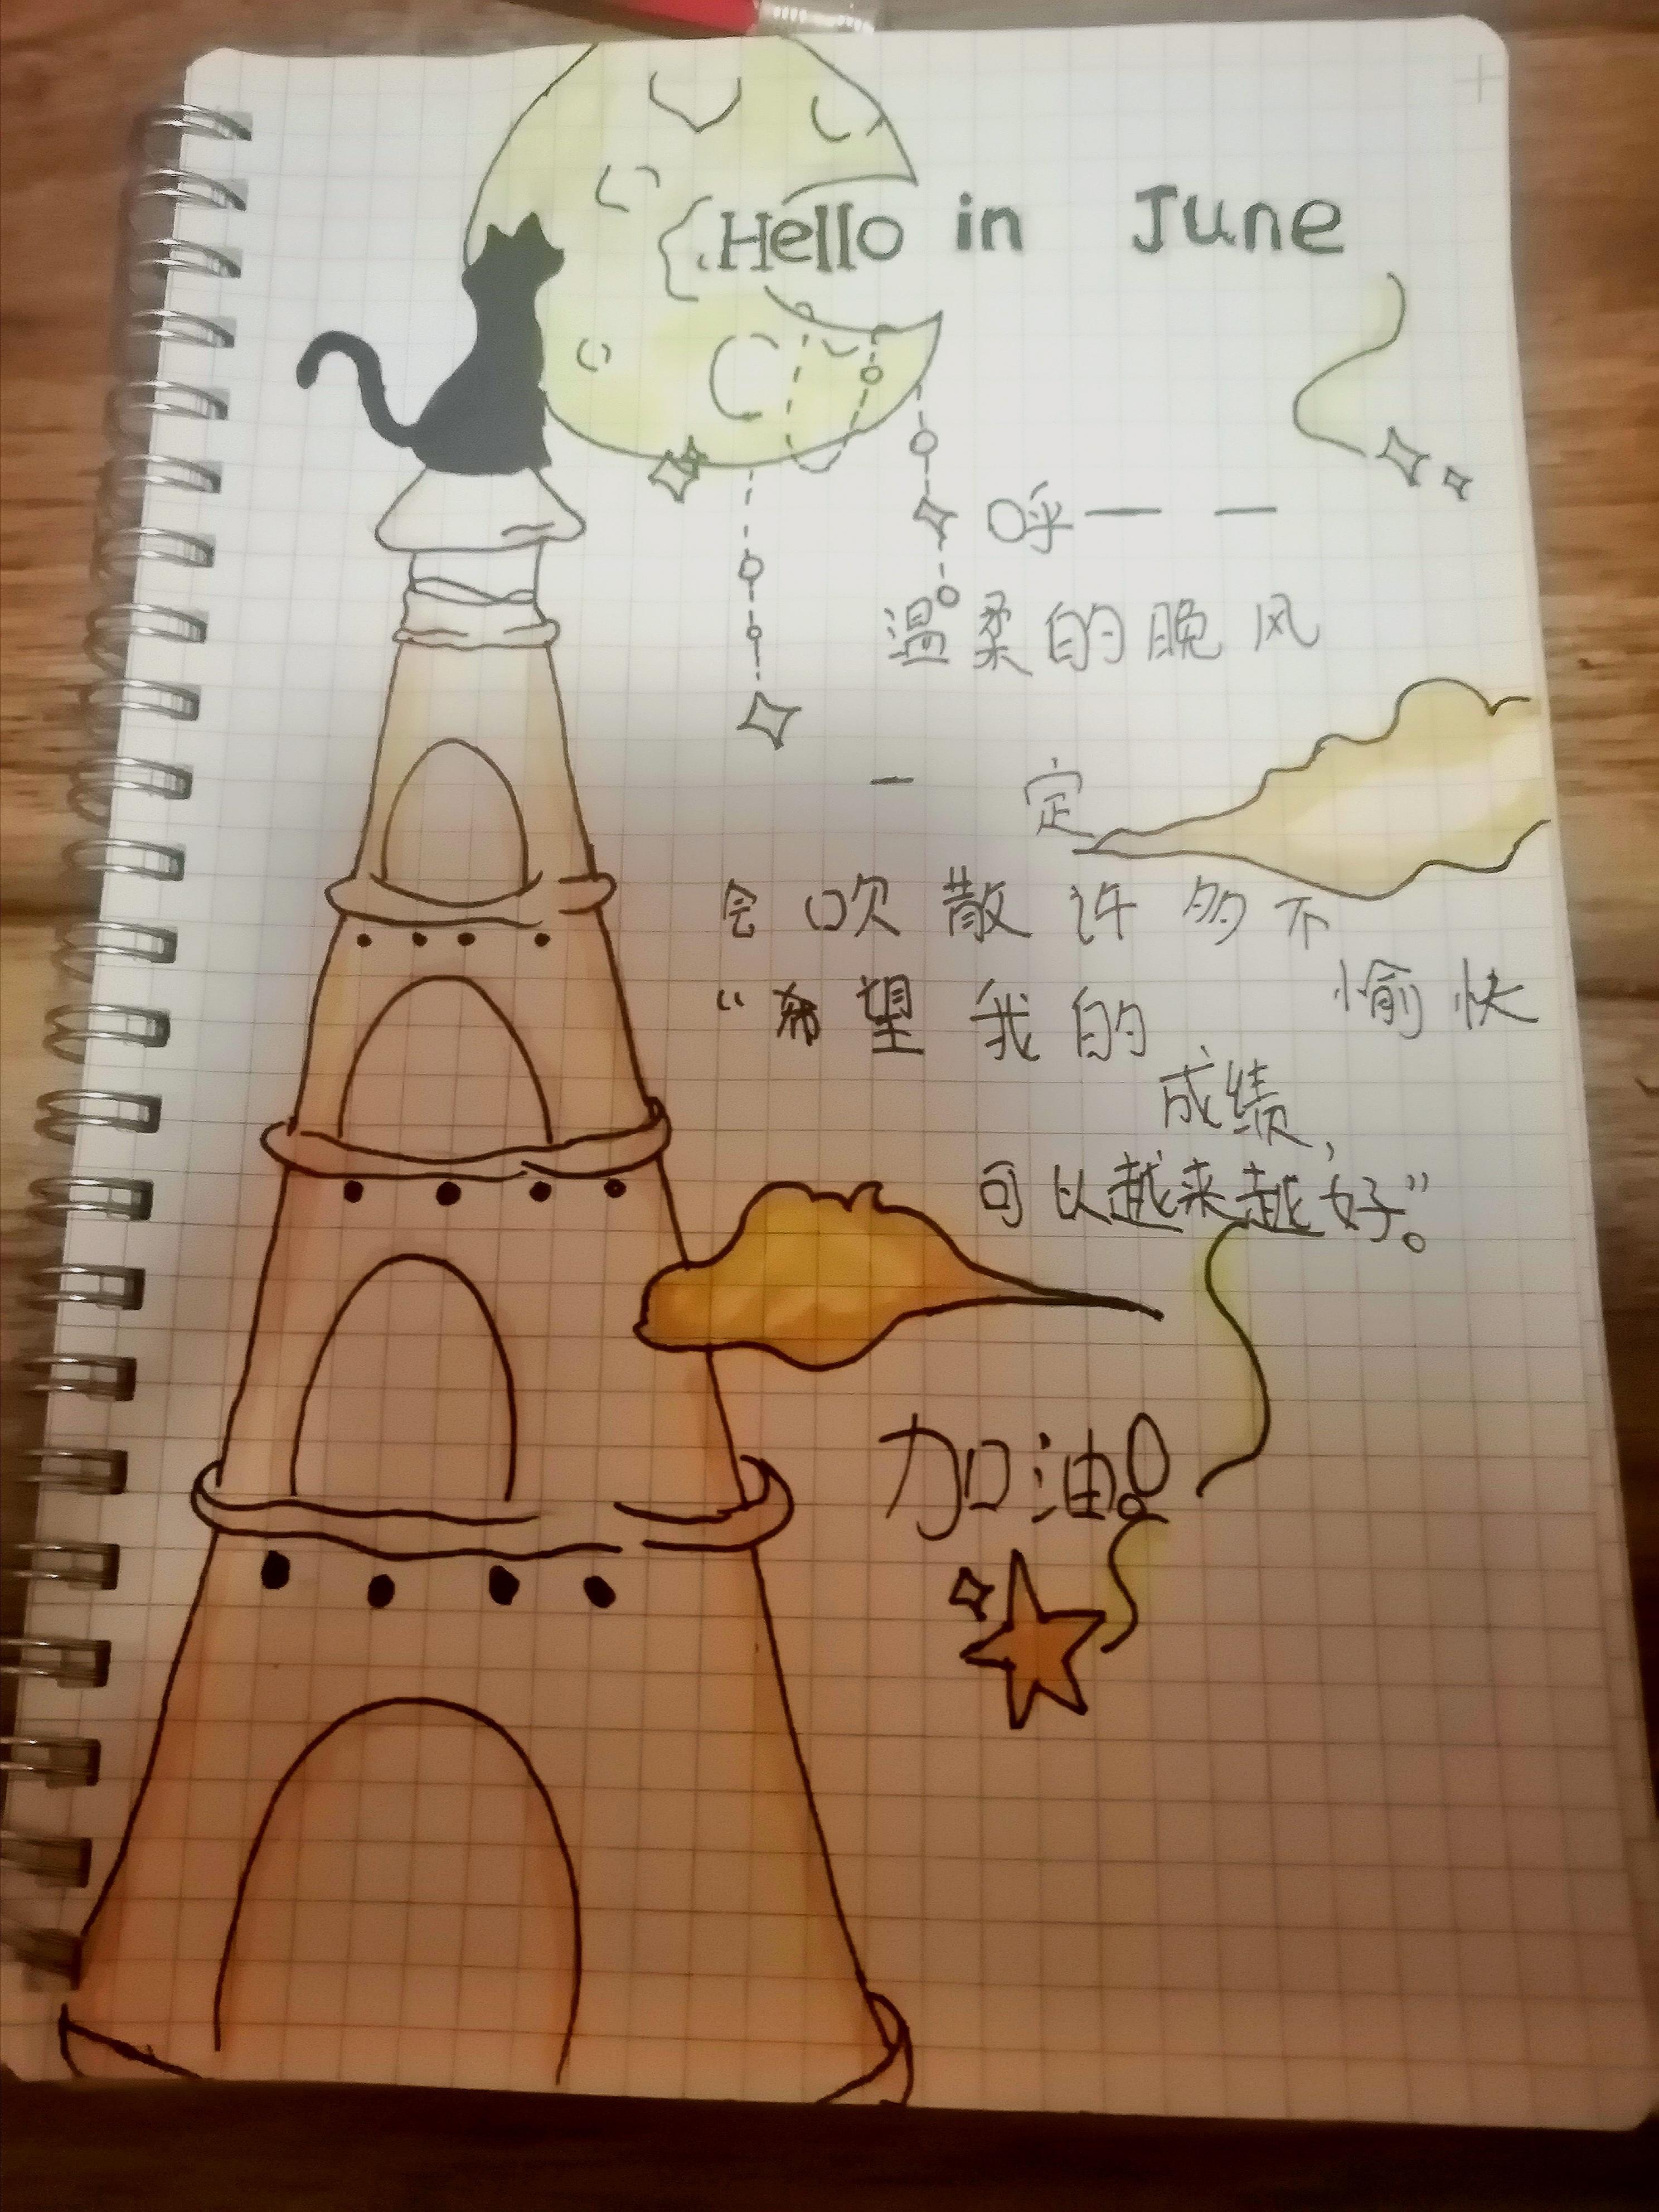 Hello in June
呼一 一
温柔的晚风
一定
会吹散许多不
愉快
“希望我的
成绩，
可以越来越好”。
加油！